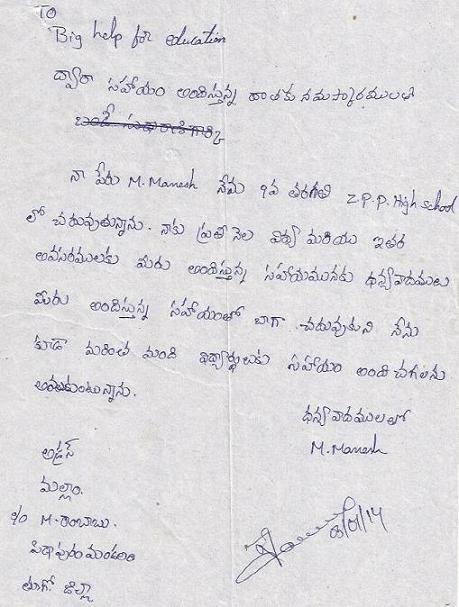 TO
Big help for education
ద్వారా సహాయం అందిస్తున్న దాతకు నమస్కారములతో
నా పేరు M. Manesh నేను 9వ తరగతి Z.P.P. High school
లో చదువుతున్నాను. నాకు ప్రతి నెల విద్య మరియు ఇతర
అవసరములకు మీరు అందిస్తున్న సహాయమునకు ధన్యవాదములు
మీరు అందిస్తున్న సహాయంతో బాగా చదువుకుని నేను
కూడా మరింత మంది విద్యార్థులకు సహాయం అందించగలను
అనుకుంటున్నాను.
ధన్యవాదములతో
M. Manesh
అడ్రస్
మల్లాం.
S/o M. రాంబాబు.
పిఠాపురం మండలం
తూగో జిల్లా